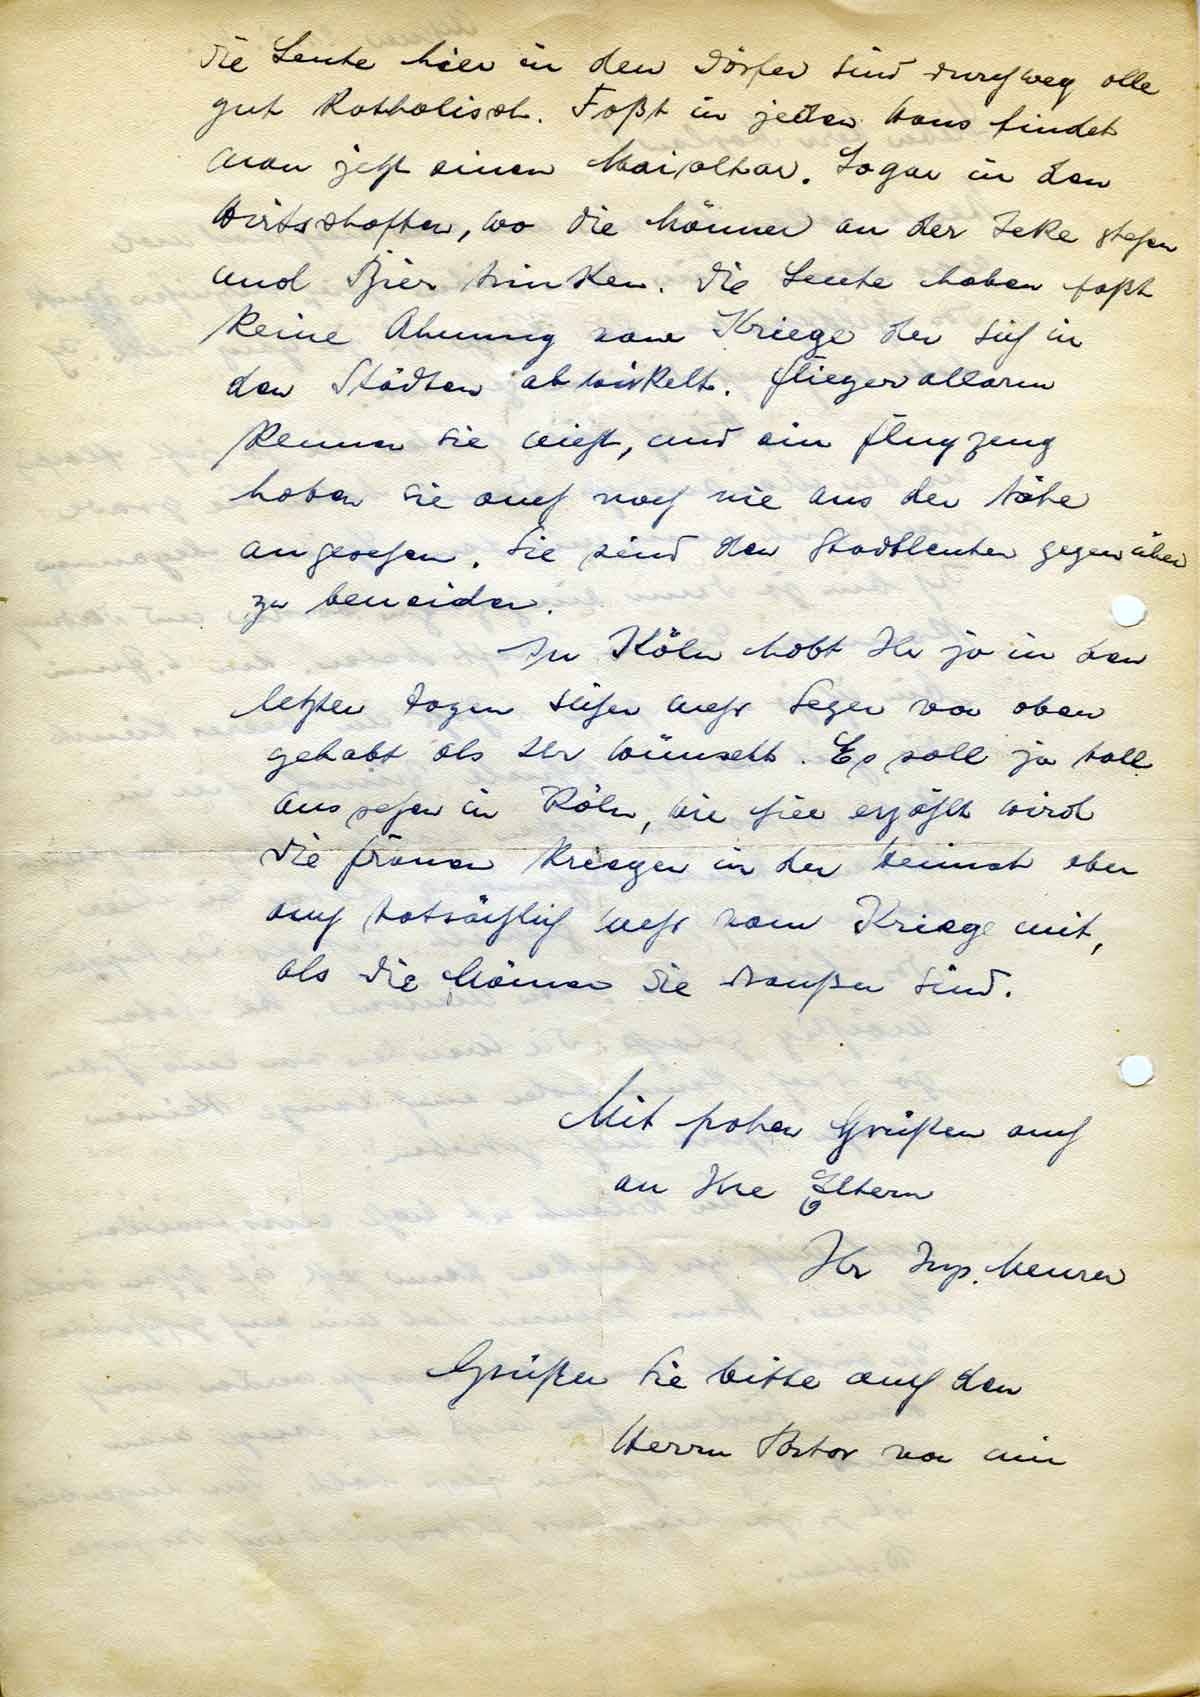 Die Leute hier in den Dörfer sind durchweg alle
gut Katholisch. Faßt in jeden Haus findet
man jetzt einen Maialtar. Sogar in den
Wirtsschaften, wo die Männer an der Teke stehen
und Bier trinken. Die Leute haben faßt
keine Ahnung vom Kriege der sich in
den Städten abwikelt. Fliegeralarm
kennen sie nicht, und ein Flugzeug
haben sie auch noch nie aus der Nähe
angesehen. Sie sind den Stadtleuten gegenüber
zu beneiden.
In Köln habt Ihr ja in den
letzten Tagen sicher mehr Segen von oben
gehabt als Ihr wünscht. Es soll ja toll
aussehen in Köln, wie hier erzählt wird
Die Frauen kriegen in der Heimat eben
auch tatsächlich mehr vom Kriege mit,
als die Männer die draußen sind.
Mit frohen Grüßen auch
an Ihre Eltern
Ihr Meurer
Grüßen Sie bitte auch den
Herrn Pastor von mir